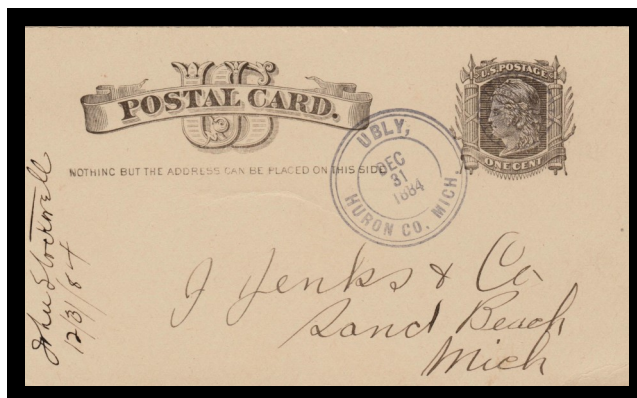 US
POSTAL CARD.
U.S. POSTAGE
ONE CENT
NOTHING BUT THE ADDRESS CAN BE PLACED ON THIS SIDE
UBLY,
DEC
31
1884
HURON CO. MICH.
J Jenks & Co
Sand Beach
Mich
John Stockwell
12/31/84